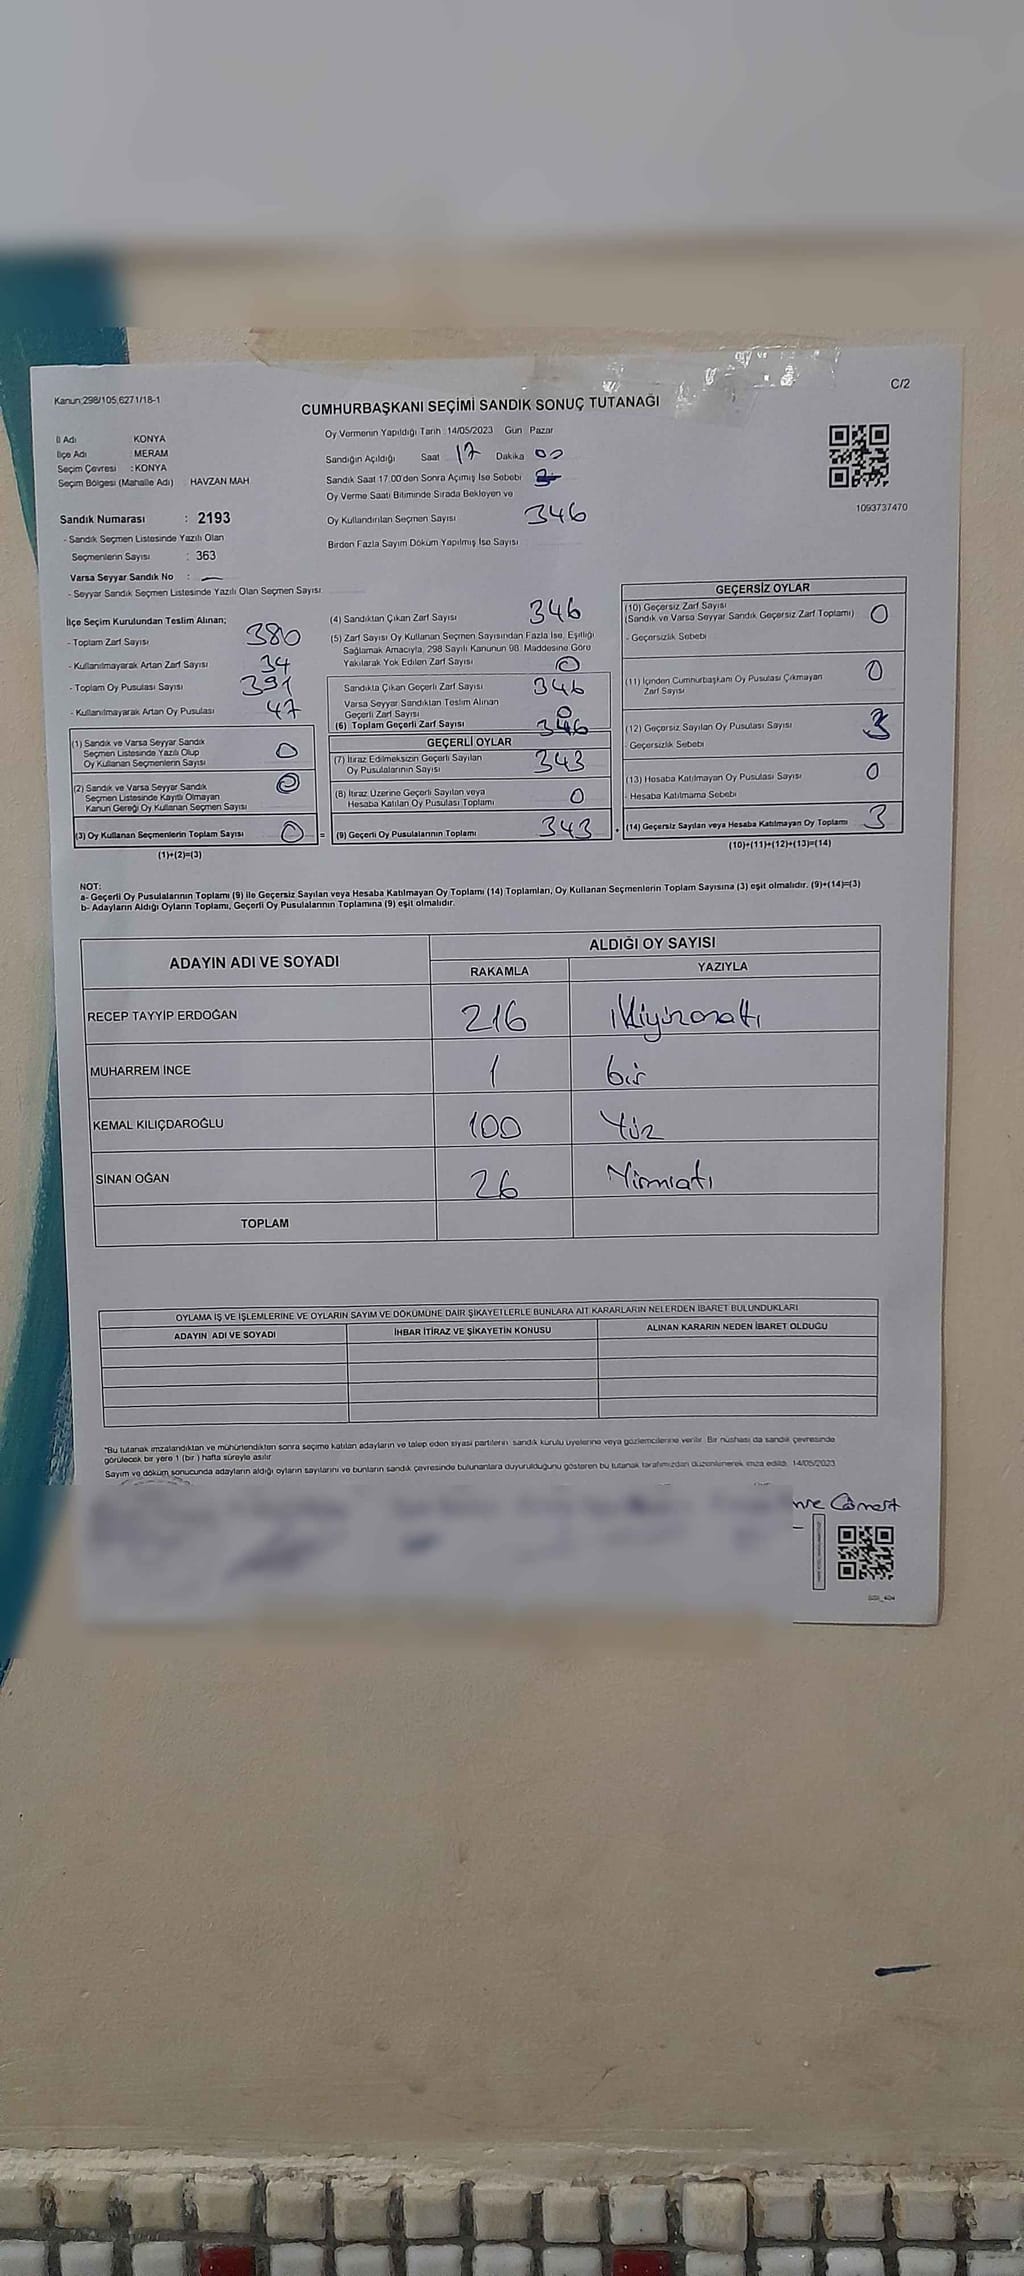 Kanun:298/105,6271/18-1
C/2
CUMHURBAŞKANI SEÇİMİ SANDIK SONUÇ TUTANAĞI
İl Adı KONYA
İlçe Adı MERAM
Seçim Çevresi : KONYA
Seçim Bölgesi (Mahalle Adı) HAVZAN MAH
Sandık Numarası : 2193
- Sandık Seçmen Listesinde Yazılı Olan
Seçmenlerin Sayısı : 363
Varsa Seyyar Sandık No : —
- Seyyar Sandık Seçmen Listesinde Yazılı Olan Seçmen Sayısı
Oy Vermenin Yapıldığı Tarih 14/05/2023 Gün Pazar
Sandığın Açıldığı Saat 17 Dakika 00
Sandık Saat 17.00'den Sonra Açımış İse Sebebi
Oy Verme Saati Bitiminde Sırada Bekleyen ve
Oy Kullandırılan Seçmen Sayısı 346
Birden Fazla Sayım Döküm Yapılmış İse Sayısı
1093737470
İlçe Seçim Kurulundan Teslim Alınan;
- Toplam Zarf Sayısı 380
- Kullanılmayarak Artan Zarf Sayısı 34
- Toplam Oy Pusulası Sayısı 391
- Kullanılmayarak Artan Oy Pusulası 47
(1) Sandık ve Varsa Seyyar Sandık
Seçmen Listesinde Yazılı Olup
Oy Kullanan Seçmenlerin Sayısı 0
(2) Sandık ve Varsa Seyyar Sandık
Seçmen Listesinde Kayıtlı Olmayan
Kanun Gereği Oy Kullanan Seçmen Sayısı 0
(3) Oy Kullanan Seçmenlerin Toplam Sayısı 0 =
(1)+(2)=(3)
(4) Sandıktan Çıkan Zarf Sayısı 346
(5) Zarf Sayısı Oy Kullanan Seçmen Sayısından Fazla İse, Eşitliği
Sağlamak Amacıyla, 298 Sayılı Kanunun 98. Maddesine Göre
Yakılarak Yok Edilen Zarf Sayısı 0
Sandıkta Çıkan Geçerli Zarf Sayısı 346
Varsa Seyyar Sandıktan Teslim Alınan
Geçerli Zarf Sayısı 0
(6) Toplam Geçerli Zarf Sayısı 346
GEÇERLİ OYLAR
(7) İtiraz Edilmeksizin Geçerli Sayılan
Oy Pusulalarının Sayısı 343
(8) İtiraz Üzerine Geçerli Sayılan veya
Hesaba Katılan Oy Pusulası Toplamı 0
(9) Geçerli Oy Pusulalarının Toplamı 343
GEÇERSİZ OYLAR
(10) Geçersiz Zarf Sayısı
(Sandık ve Varsa Seyyar Sandık Geçersiz Zarf Toplamı) 0
- Geçersizlik Sebebi
(11) İçinden Cumhurbaşkanı Oy Pusulası Çıkmayan
Zarf Sayısı 0
(12) Geçersiz Sayılan Oy Pusulası Sayısı 3
- Geçersizlik Sebebi
(13) Hesaba Katılmayan Oy Pusulası Sayısı 0
- Hesaba Katılmama Sebebi
(14) Geçersiz Sayılan veya Hesaba Katılmayan Oy Toplamı 3
(10)+(11)+(12)+(13)=(14)
NOT:
a- Geçerli Oy Pusulalarının Toplamı (9) ile Geçersiz Sayılan veya Hesaba Katılmayan Oy Toplamı (14) Toplamları, Oy Kullanan Seçmenlerin Toplam Sayısına (3) eşit olmalıdır. (9)+(14)=(3)
b- Adayların Aldığı Oyların Toplamı, Geçerli Oy Pusulalarının Toplamına (9) eşit olmalıdır.
ADAYIN ADI VE SOYADI
ALDIĞI OY SAYISI
RAKAMLA YAZIYLA
RECEP TAYYİP ERDOĞAN 216 ikiyüzonaltı
MUHARREM İNCE 1 bir
KEMAL KILIÇDAROĞLU 100 Yüz
SİNAN OĞAN 26 Yirmialtı
TOPLAM
OYLAMA İŞ VE İŞLEMLERİNE VE OYLARIN SAYIM VE DÖKÜMÜNE DAİR ŞİKAYETLERLE BUNLARA AİT KARARLARIN NELERDEN İBARET BULUNDUKLARI
ADAYIN ADI VE SOYADI İHBAR İTİRAZ VE ŞİKAYETİN KONUSU ALINAN KARARIN NEDEN İBARET OLDUĞU
*Bu tutanak imzalandıktan ve mühürlendikten sonra seçime katılan adayların ve talep eden siyasi partilerin sandık kurulu üyelerine veya gözlemcilerine verilir. Bir nüshası da sandık çevresinde
görülecek bir yere 1 (bir ) hafta süreyle asılır
Sayım ve döküm sonucunda adayların aldığı oyların sayılarını ve bunların sandık çevresinde bulunanlara duyurulduğunu gösteren bu tutanak tarafımızdan düzenlenerek imza edildi. 14/05/2023